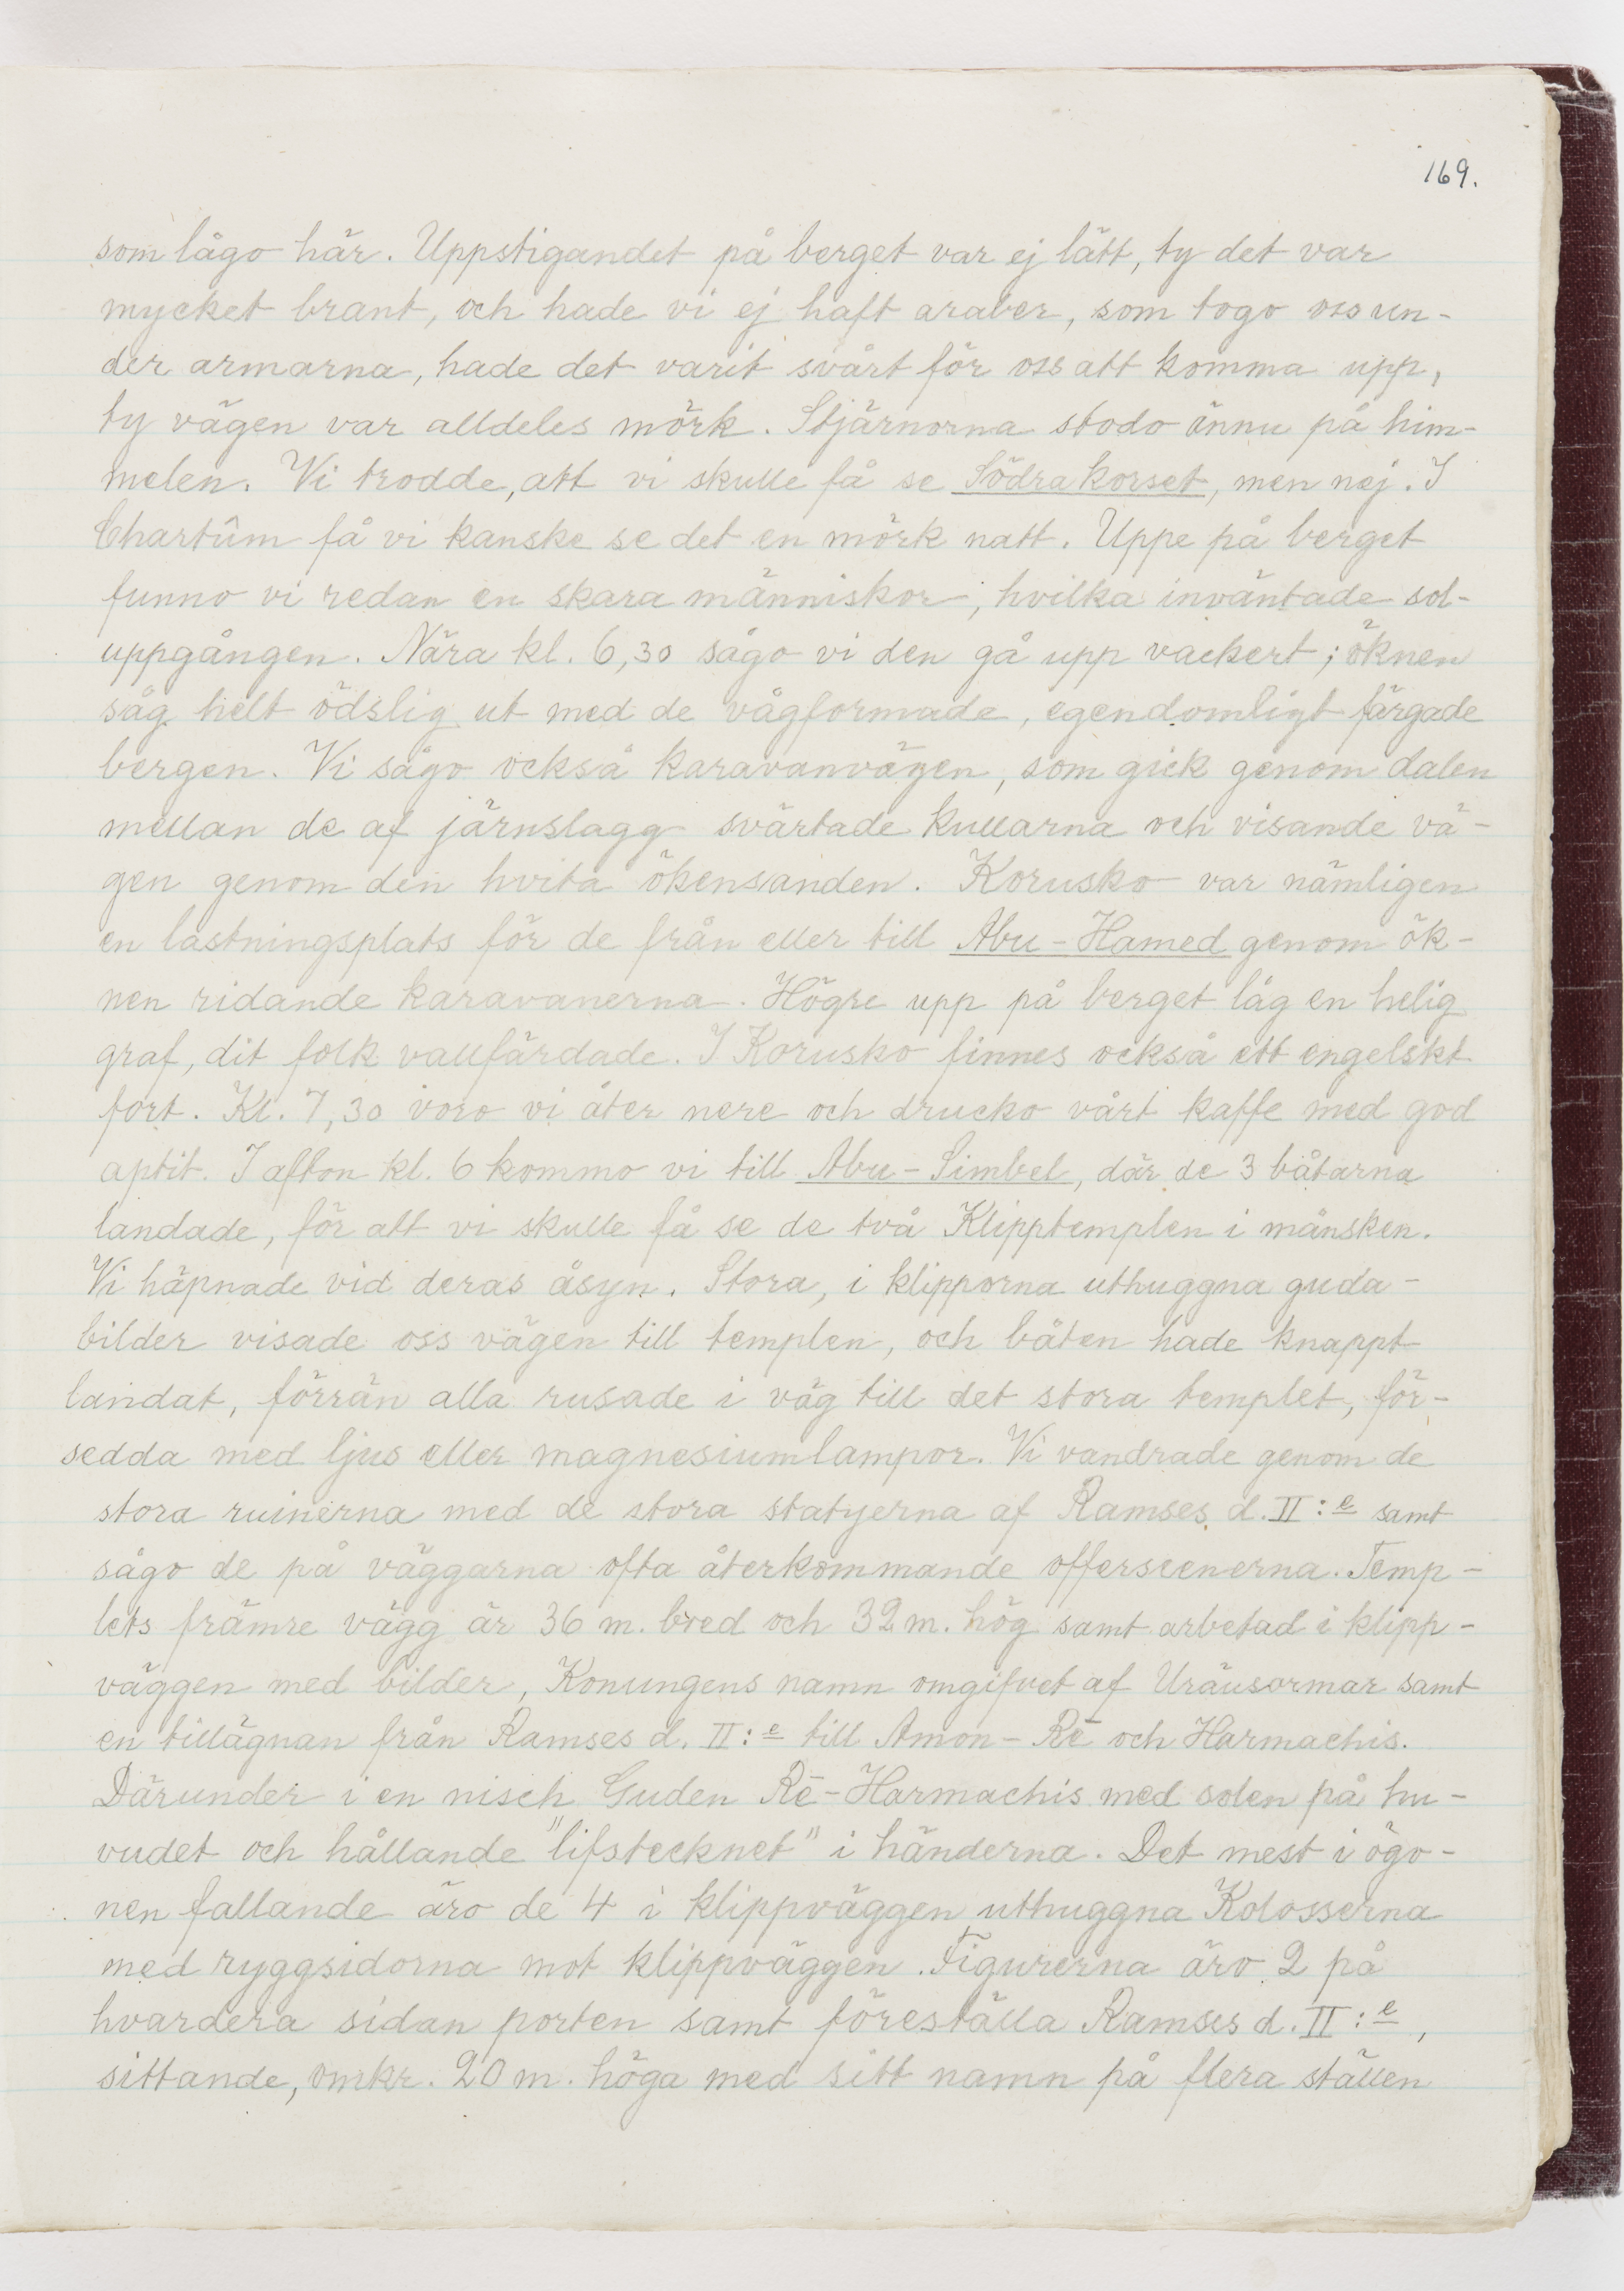 169.
som lågo här. Uppstigandet på berget var ej lätt, ty det var
mycket brant, och hade vi ej haft araber, som togo oss un-
der armarna, hade det varit svårt för oss att komma upp,
ty vägen var alldeles mörk. Stjärnorna stodo ännu på him-
melen. Vi trodde, att vi skulle få se Södra korset, men nej. I
Chartûm få vi kanske se det en mörk natt. Uppe på berget
funno vi redan en skara människor, hvilka inväntade sol-
uppgången. Nära kl. 6,30 sågo vi den gå upp vackert; öknen
såg helt ödslig ut med de vågformade, egendomligt färgade
bergen. Vi sågo också karavanvägen, som gick genom dalen
mellan de af järnslagg svärtade kullarna och visande vä-
gen genom den hvita ökensanden. Korusko var nämligen
en lastningsplats för de från eller till Abu-Hamed genom ök-
nen ridande karavanerna. Högre upp på berget låg en helig
graf, dit folk vallfärdade. I Korusko finnes också ett engelskt
fort. Kl. 7,30 voro vi åter nere och drucko vårt kaffe med god
aptit. I afton kl. 6 kommo vi till Abu-Simbel, där de 3 båtarna
landade, för att vi skulle få se de två Klipptemplen i månsken.
Vi häpnade vid deras åsyn. Stora, i klipporna uthuggna guda-
bilder visade oss vägen till templen, och båten hade knappt
landat, förrän alla rusade i väg till det stora templet, för-
sedda med ljus eller magnesiumlampor. Vi vandrade genom de
stora ruinerna med de stora statyerna af Ramses d. II:e samt
sågo de på väggarna ofta återkommande offerscenerna. Temp-
lets främre vägg är 36 m. bred och 32 m. hög samt arbetad i klipp-
väggen med bilder, Konungens namn omgifvet af Uräusormar samt
en tillägnan från Ramses d. II:e till Amon-Rē och Harmachis.
Därunder i en nisch Guden Rē-Harmachis med solen på hu-
vudet och hållande "lifstecknet" i händerna. Det mest i ögo-
nen fallande äro de 4 i klippväggen uthuggna Kolosserna
med ryggsidorna mot klippväggen. Figurerna äro 2 på
hvardera sidan porten samt föreställa Ramses d. II:e,
sittande, omkr. 20 m. höga med sitt namn på flera ställen